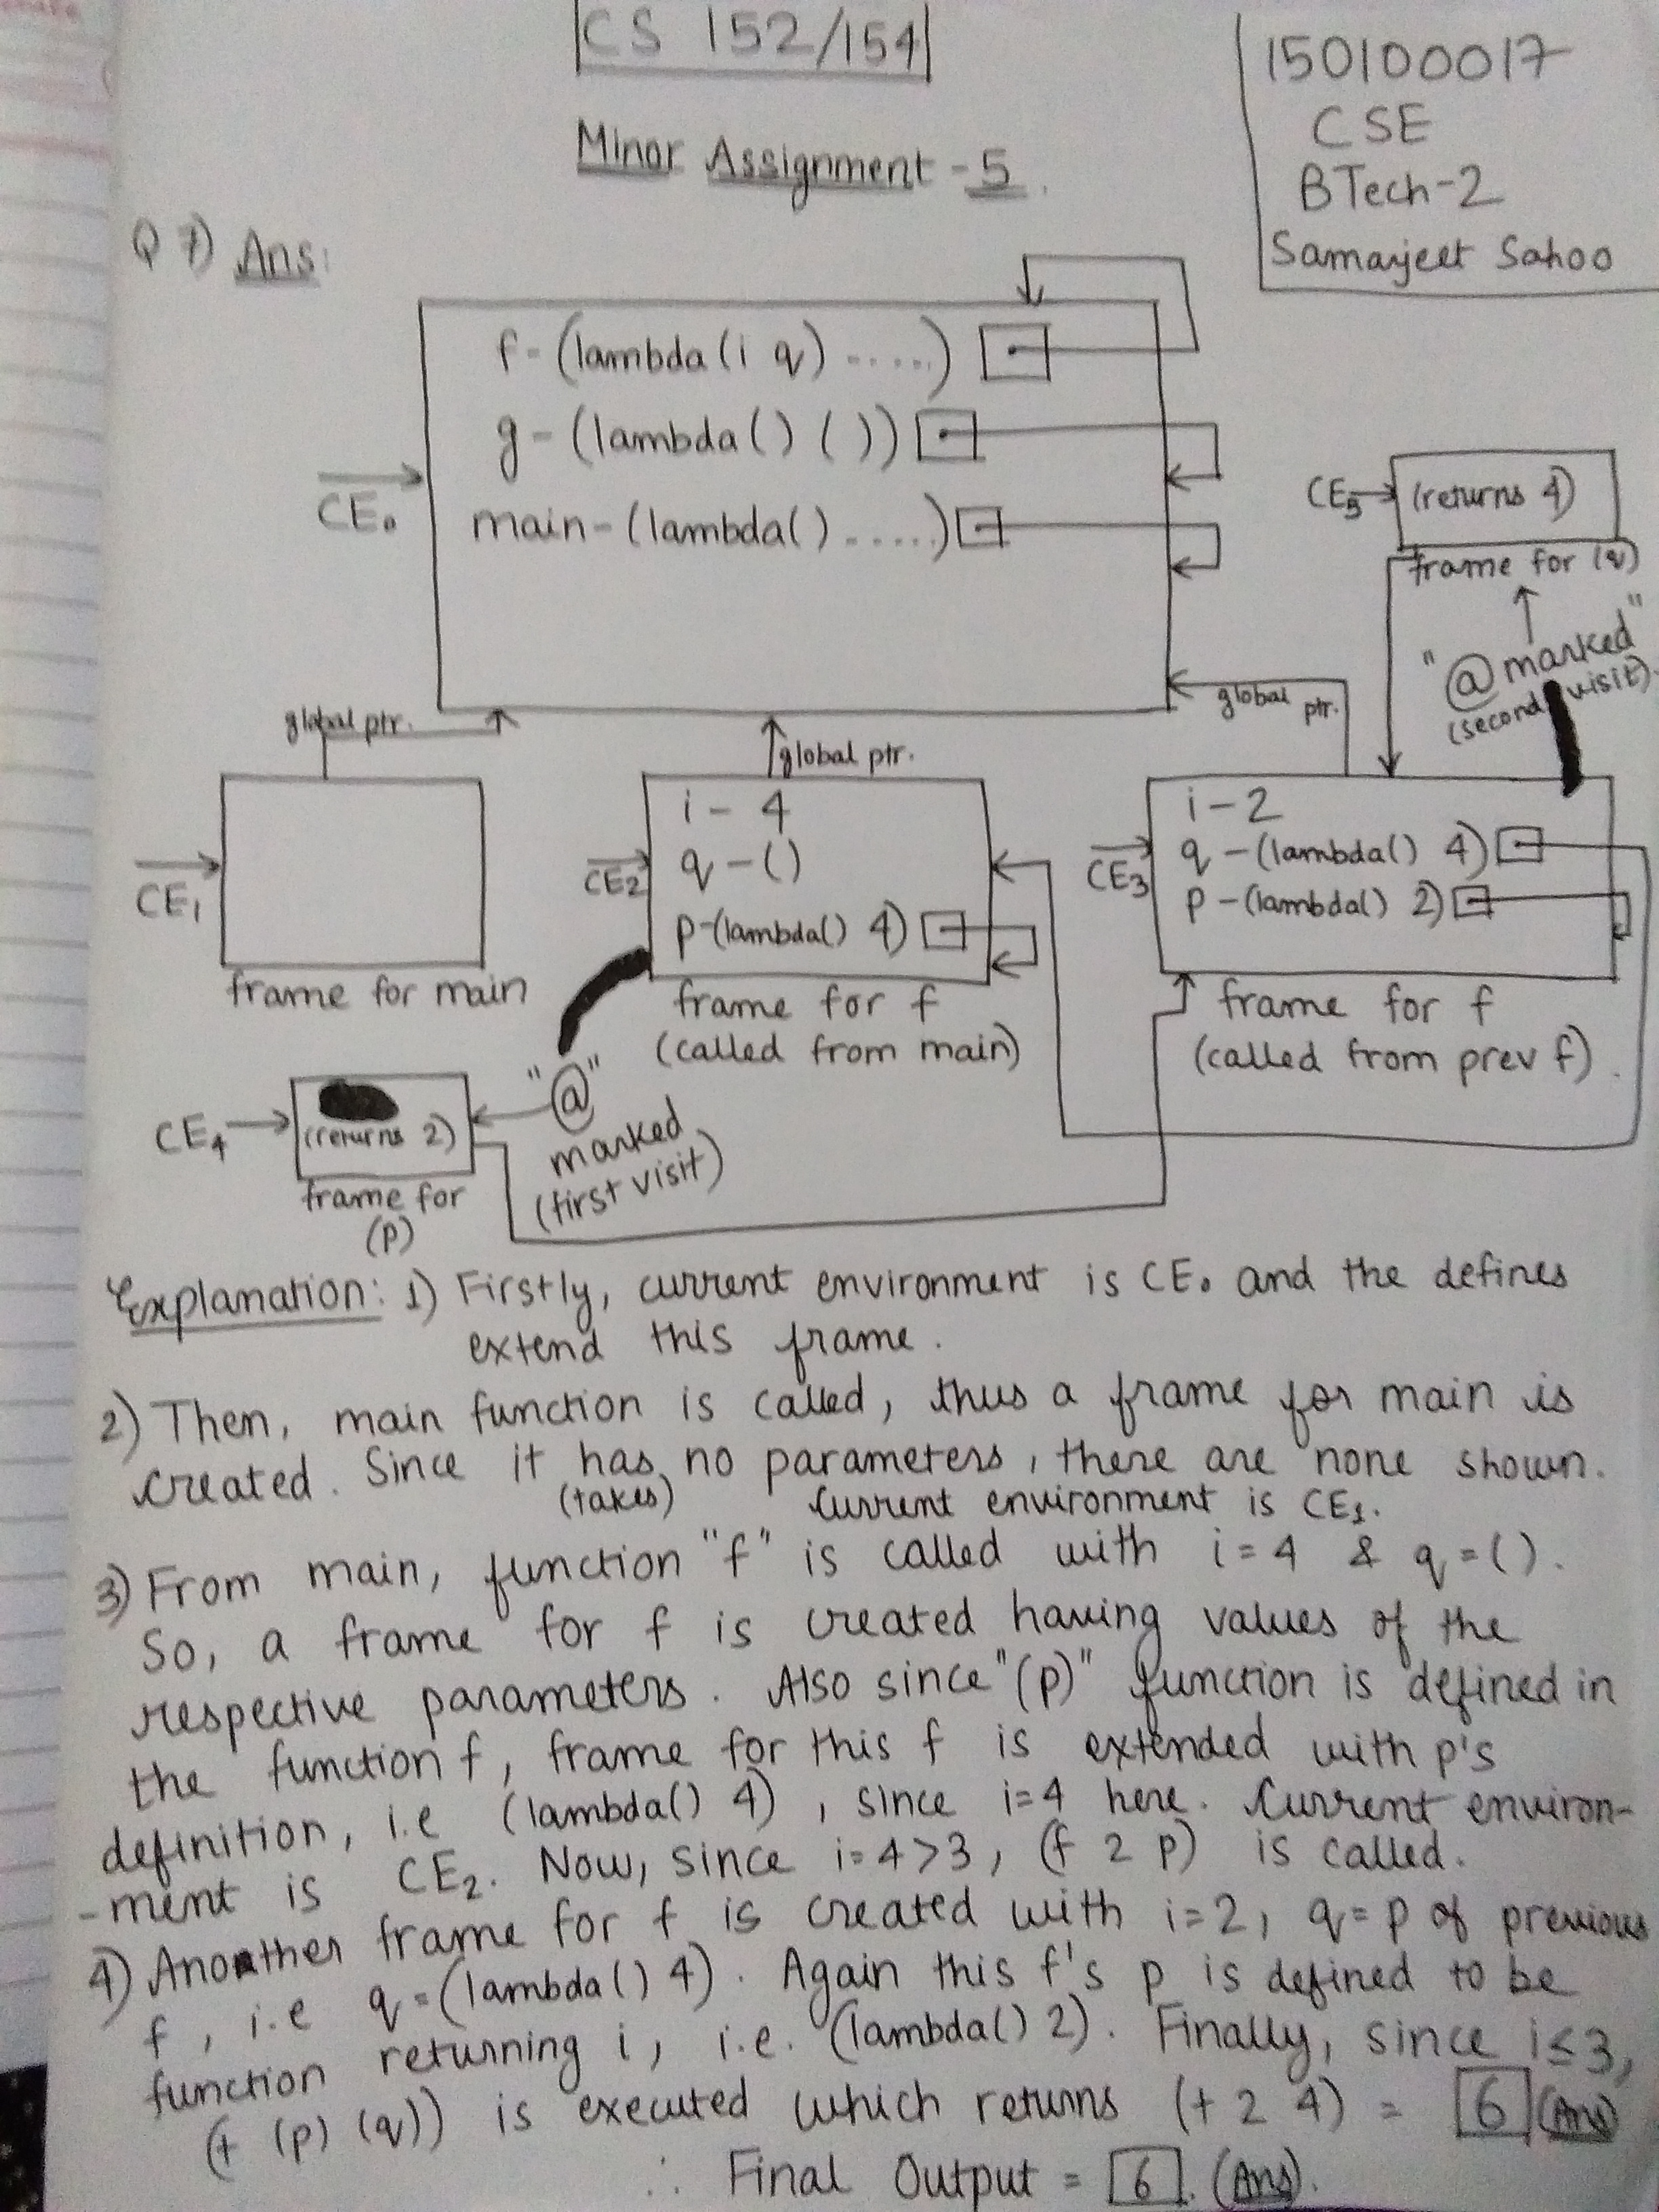 CS 152/154
150100017
CSE
BTech-2
Samarjeet Sahoo
Minor Assignment -5.
Q 7) Ans:
f- (lambda (i q) .....)
g- (lambda () ( ))
main- (lambda() .....)
CE₀
CE₅ (returns 4)
frame for (q)
"@ marked"
(second visit).
global ptr.
global ptr.
global ptr.
CE₁
frame for main
CE2
i - 4
q - ()
p-(lambda() 4)
frame for f
(called from main)
CE3
i - 2
q - (lambda() 4)
p - (lambda() 2)
frame for f
(called from prev f).
CE₄
(returns 2)
frame for
(p)
"@"
marked
(first visit)
Explanation: 1) Firstly, current environment is CE₀ and the defines
extend this frame.
2) Then, main function is called, thus a frame for main is
created. Since it has no parameters, there are none shown.
(takes) Current environment is CE₁.
3) From main, function "f" is called with i = 4 & q = ().
So, a frame for f is created having values of the
respective parameters. Also since "(p)" function is defined in
the function f, frame for this f is extended with p's
definition, i.e (lambda() 4), since i=4 here. Current environ-
-ment is CE₂. Now, since i=4>3, (f 2 p) is called.
4) Another frame for f is created with i=2, q=p of previous
f, i.e q=(lambda() 4). Again this f's p is defined to be
function returning i, i.e. (lambda() 2). Finally, since i≤3,
(+ (p) (q)) is executed which returns (+ 2 4) = 6 (Ans)
∴ Final Output = 6. (Ans).